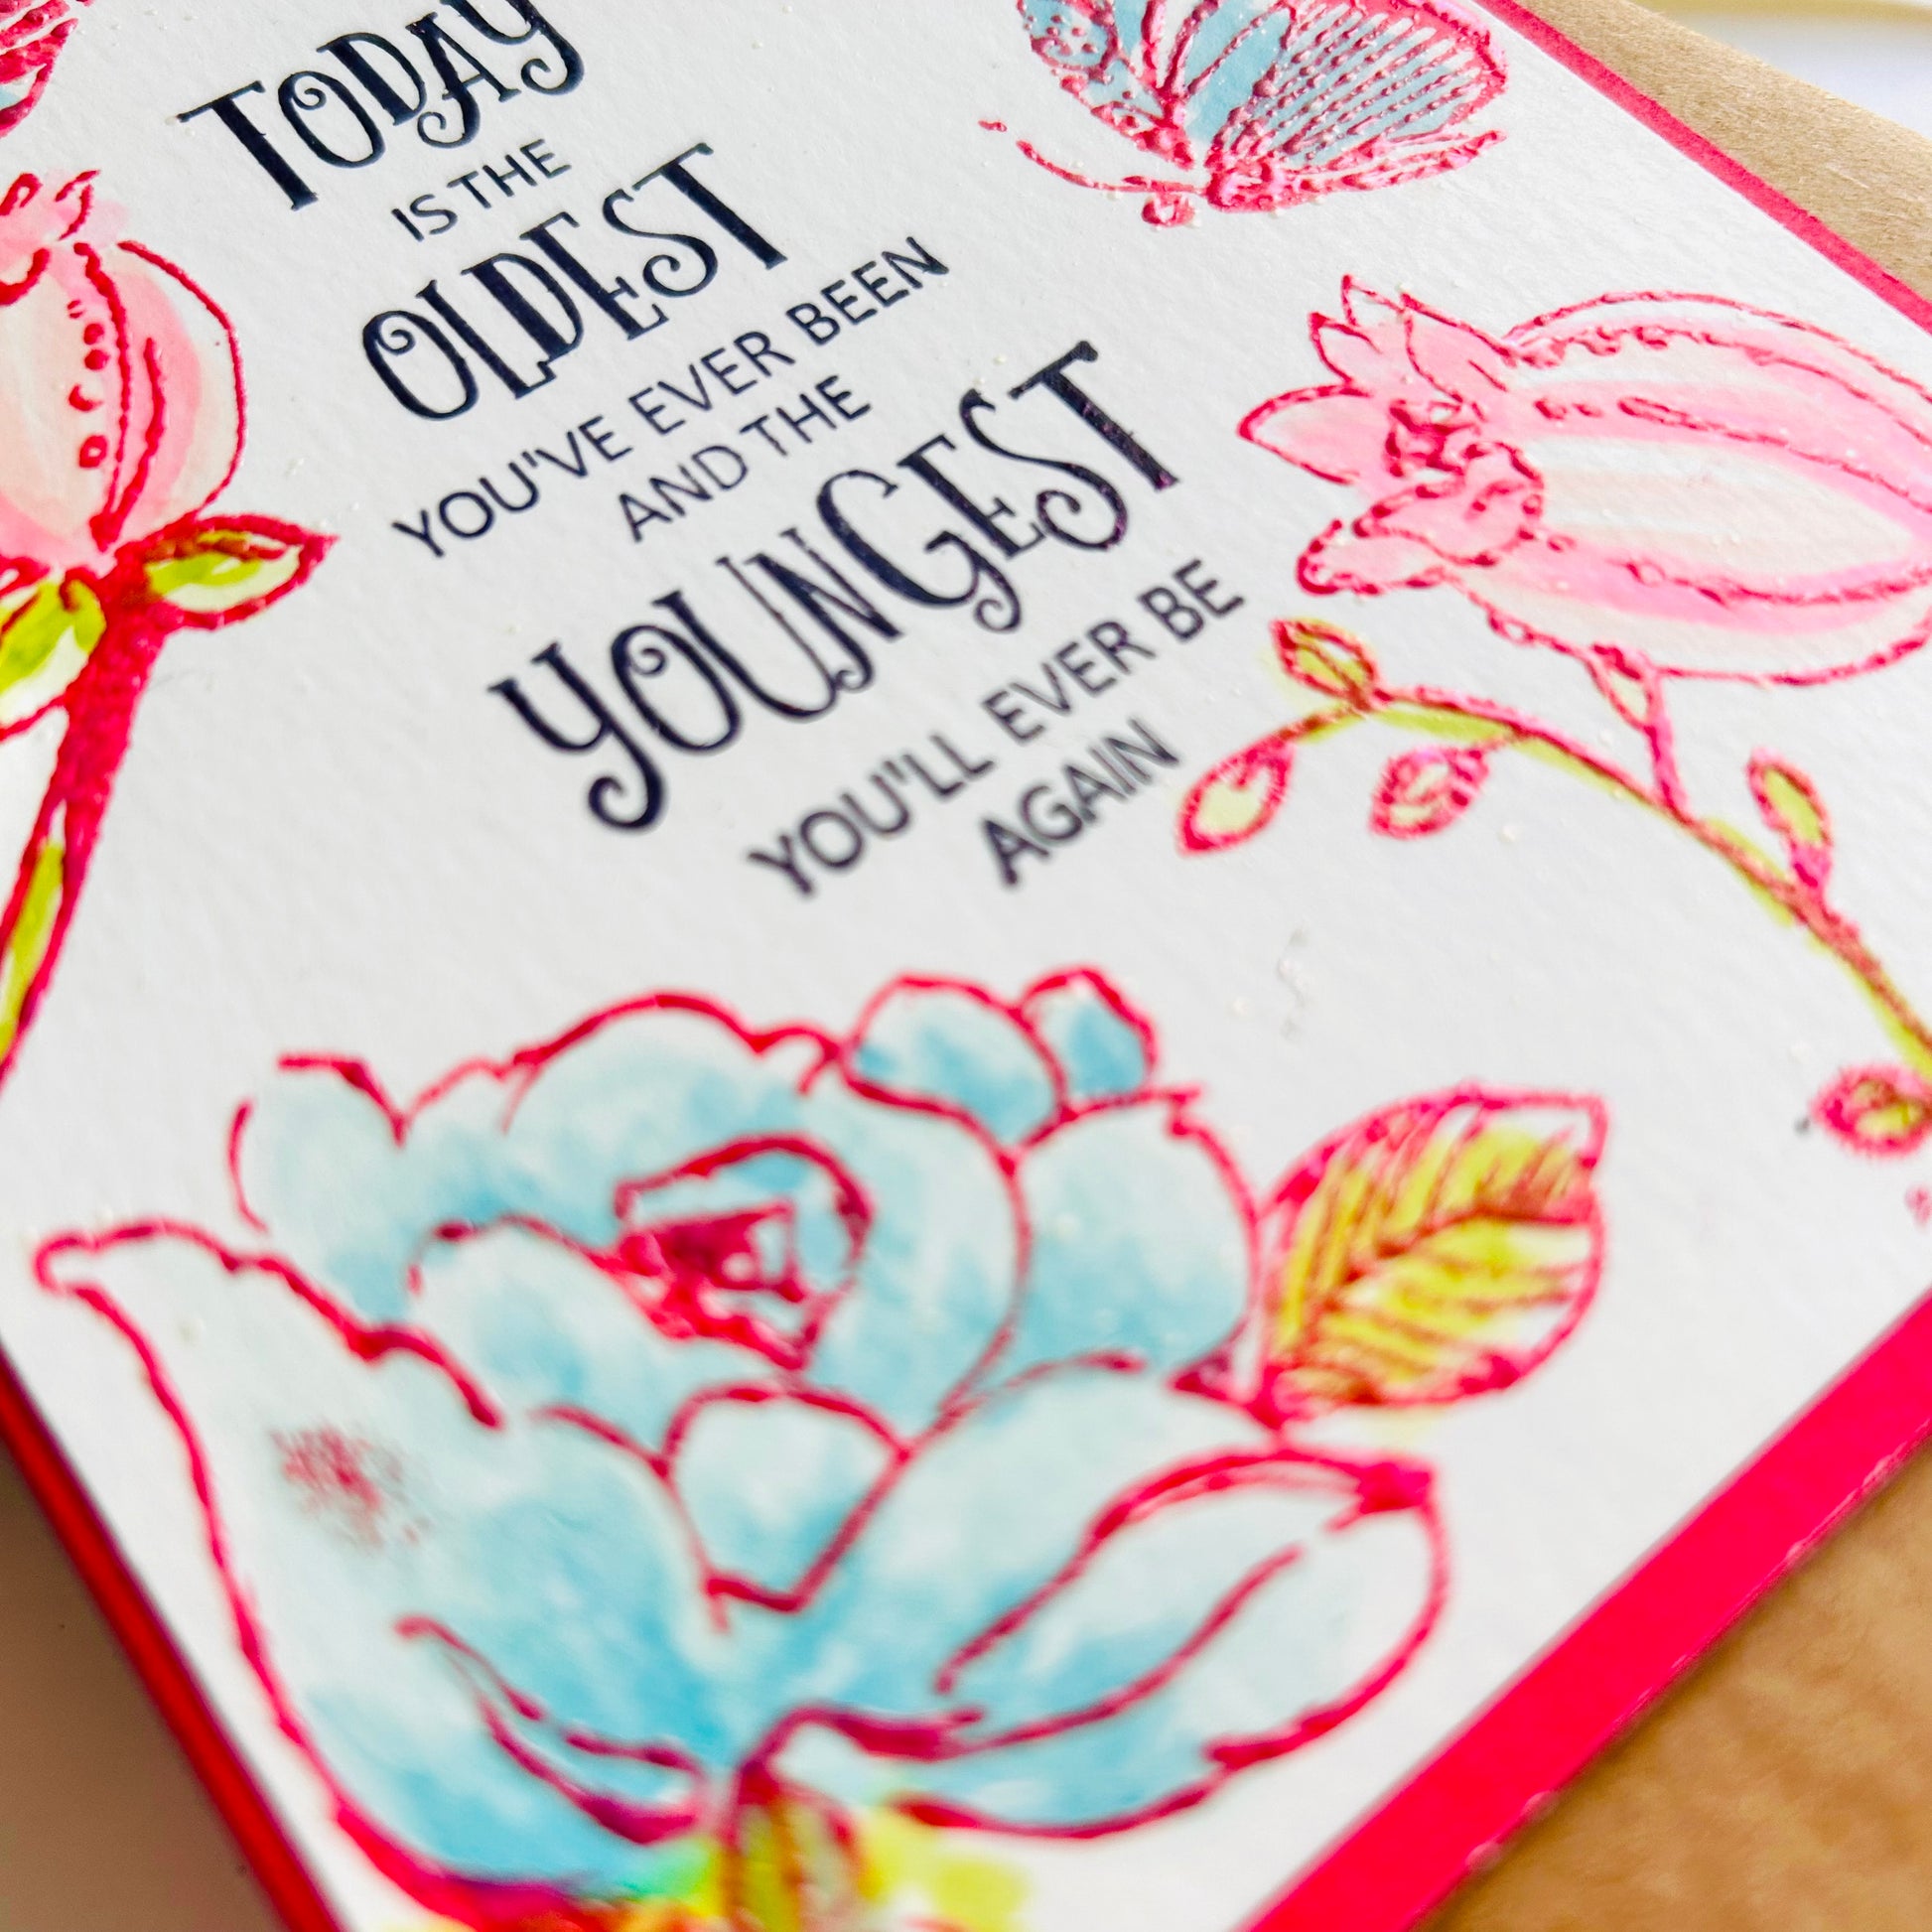 TODAY
IS THE
OLDEST
YOU'VE EVER BEEN
AND THE
YOUNGEST
YOU'LL EVER BE
AGAIN